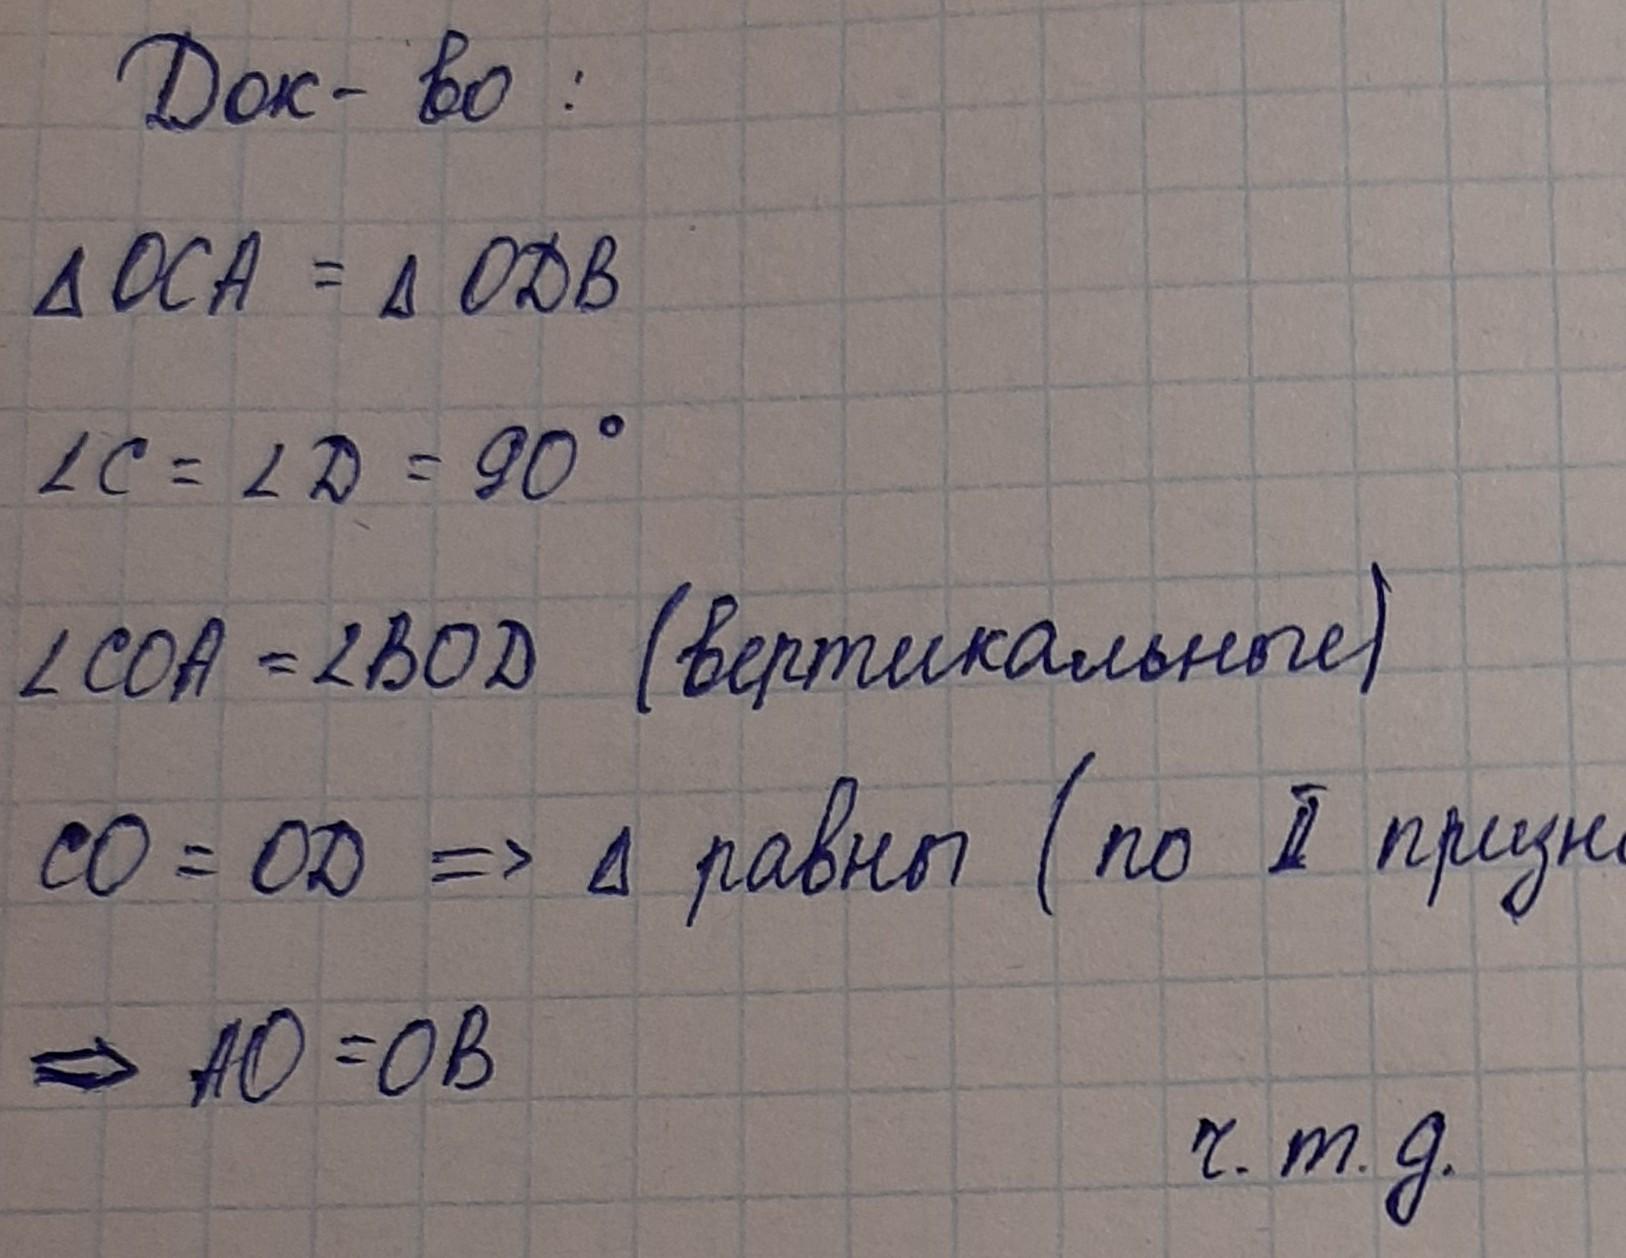 Док-во:
Δ OCA = Δ ODB
∠C = ∠D = 90°
∠COA = ∠BOD (вертикальные)
CO = OD => Δ равны (по II призна
⇒ AO = OB
ч.т.д.